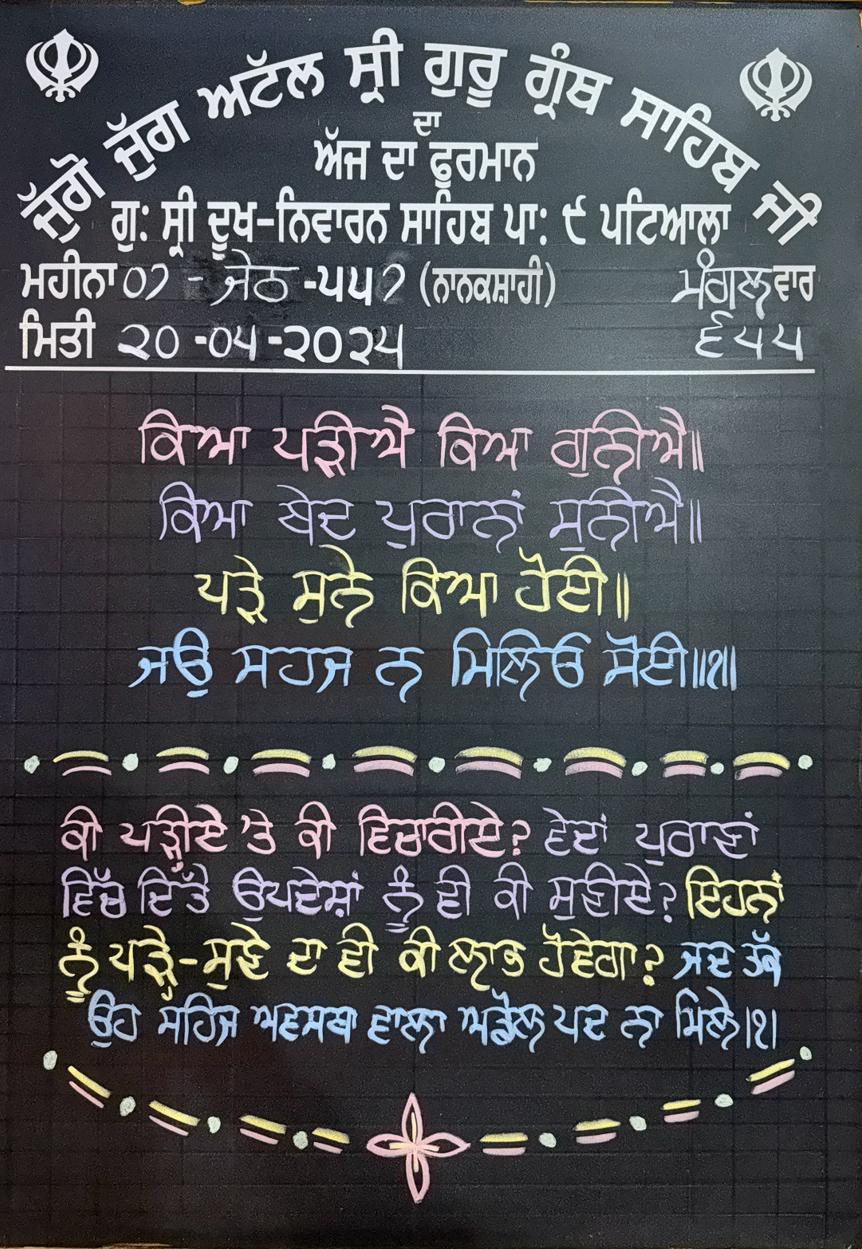 ਜੁੱਗੋ ਜੁੱਗ ਅਟੱਲ ਸ੍ਰੀ ਗੁਰੂ ਗ੍ਰੰਥ ਸਾਹਿਬ ਜੀ
ਦਾ
ਅੱਜ ਦਾ ਫੁਰਮਾਨ
ਗੁ: ਸ੍ਰੀ ਦੂਖ-ਨਿਵਾਰਨ ਸਾਹਿਬ ਪਾ: ੯ ਪਟਿਆਲਾ
ਮਹੀਨਾ 07 - ਜੇਠ -੫੫7 (ਨਾਨਕਸ਼ਾਹੀ) ਮੰਗਲਵਾਰ
ਮਿਤੀ ੨੦ -੦੫ -੨੦੨੫ ੬੫੫
ਕਿਆ ਪੜੀਐ ਕਿਆ ਗੁਨੀਐ॥
ਕਿਆ ਬੇਦ ਪੁਰਾਨਾਂ ਸੁਨੀਐ॥
ਪੜੇ ਸੁਨੇ ਕਿਆ ਹੋਈ॥
ਜਉ ਸਹਜ ਨ ਮਿਲਿਓ ਸੋਈ॥੧॥
ਕੀ ਪੜ੍ਹੀਏ 'ਤੇ ਕੀ ਵਿਚਾਰੀਏ? ਵੇਦਾਂ ਪੁਰਾਣਾਂ
ਵਿੱਚ ਦਿੱਤੇ ਉਪਦੇਸ਼ਾਂ ਨੂੰ ਵੀ ਕੀ ਸੁਣੀਏ? ਇਹਨਾਂ
ਨੂੰ ਪੜ੍ਹੇ-ਸੁਣੇ ਦਾ ਵੀ ਕੀ ਲਾਭ ਹੋਵੇਗਾ? ਜਦ ਤੱਕ
ਉਹ ਸਹਿਜ ਅਵਸਥਾ ਵਾਲਾ ਅਡੋਲ ਪਦ ਨਾ ਮਿਲੇ।੧।